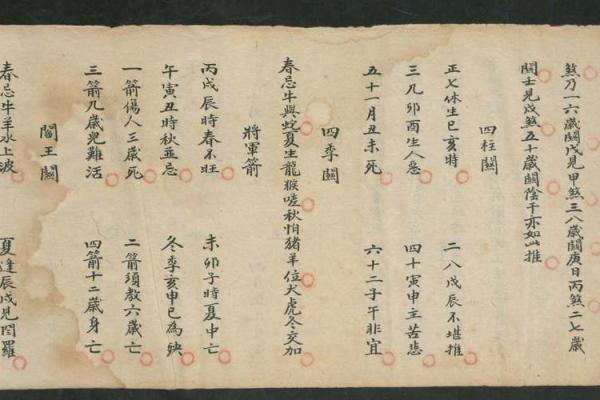 煞乃一六歲關戊見甲煞三八歲關庚日丙煞二七歲
關壬見戊煞五十歲關陰干亦如此推
四柱關
正七休生巳亥時 二八戊辰不堪推
三九卯酉生人惡 四十寅申主苦悲
五十一月丑未死 六十二子午非宜
四季關
春忌牛與蛇夏生龍猴嗟秋怕猪羊位犬虎冬交加
將軍箭
丙戌辰時春不旺 未卯子時夏中亡
午寅丑時秋並忌 冬季亥申巳為殃
一箭傷人三歲死 二箭須教六歲亡
三箭九歲兒難活 四箭十二歲身亡
閻王關
春忌牛羊水上波 夏逢辰戌見罔羅